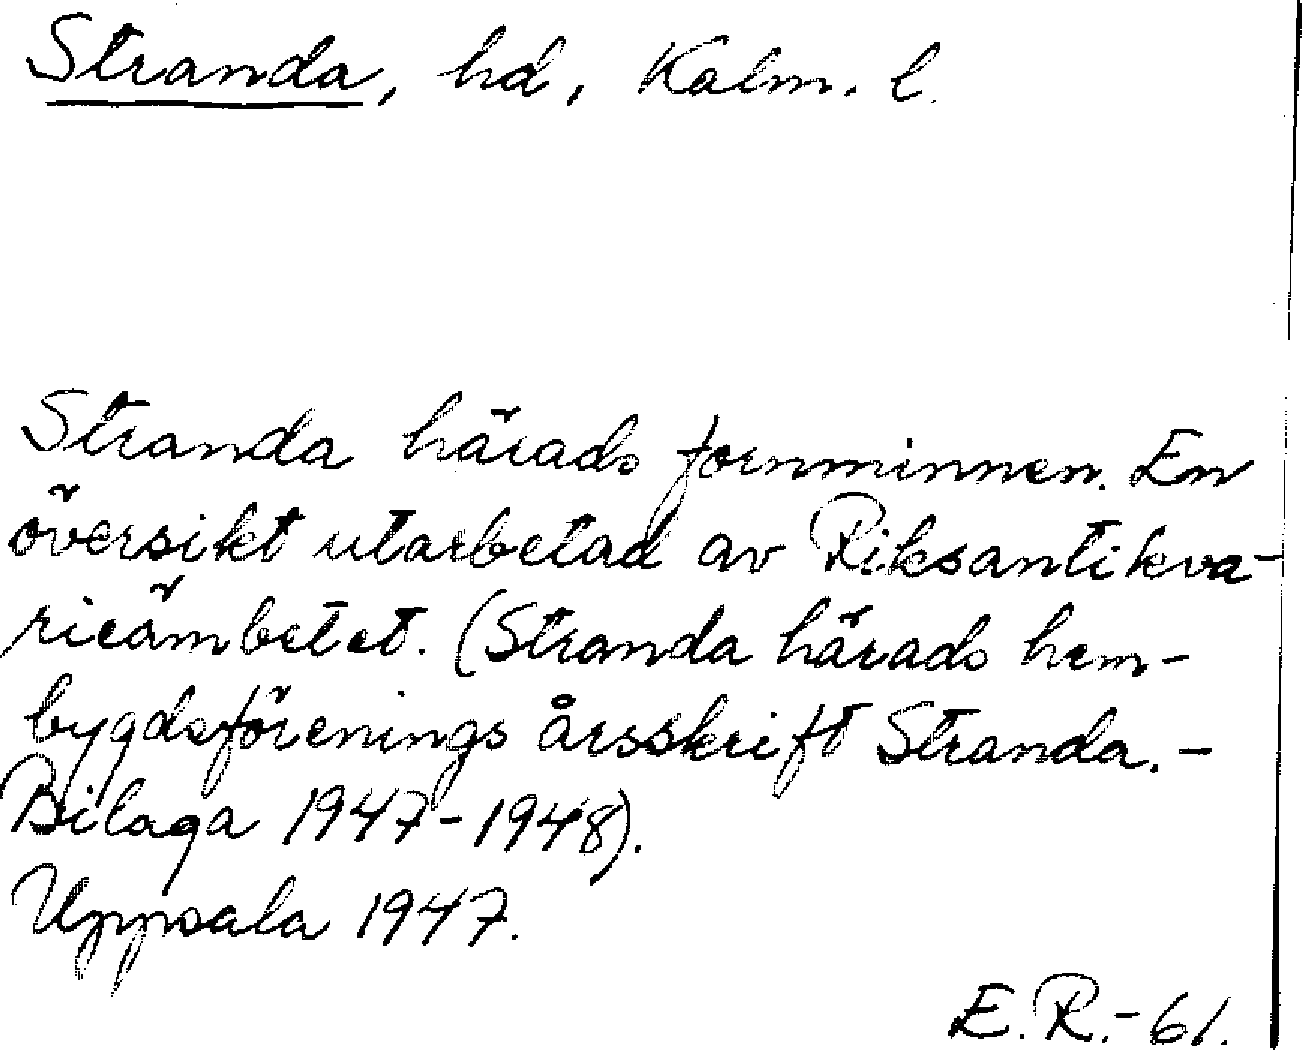 Stranda, hd, Kalm. l.
Stranda härads fornminnen. En
översikt utarbetad av Riksantikva-
rieämbetet. (Stranda härads hem-
bygdsförenings årsskrift Stranda. -
Bilaga 1947-1948).
Uppsala 1947.
E. R. - 61.